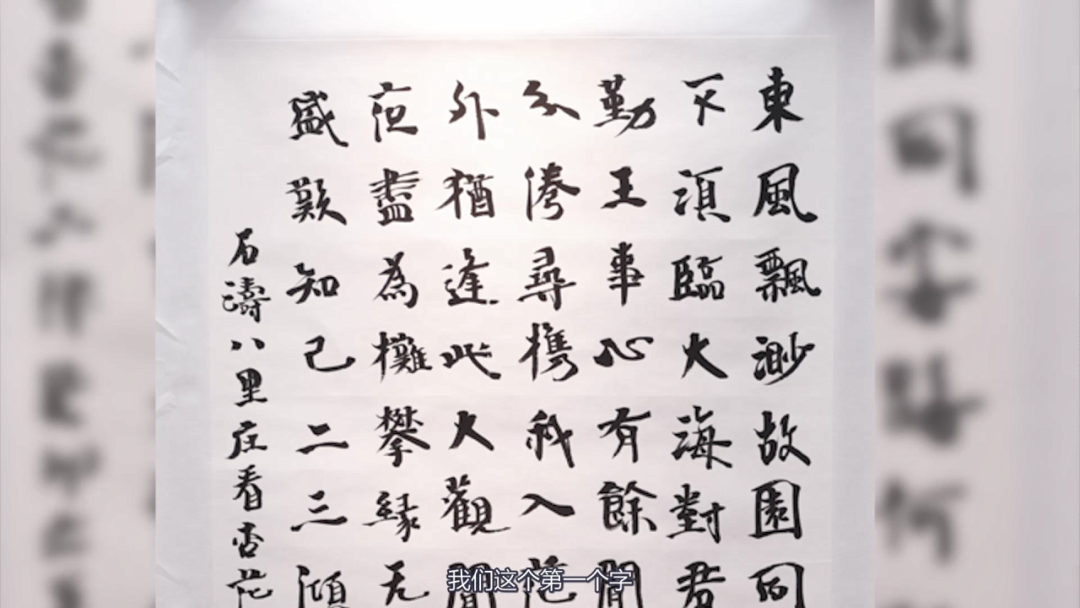 東風飄渺故園
不須臨大海對君
勤王事心有餘閒
不倦尋携我入花
外猶逢此大觀聞
盡為攀緣无
盛歎知己二三
石濤八里庄看杏花
我们这个第一个字